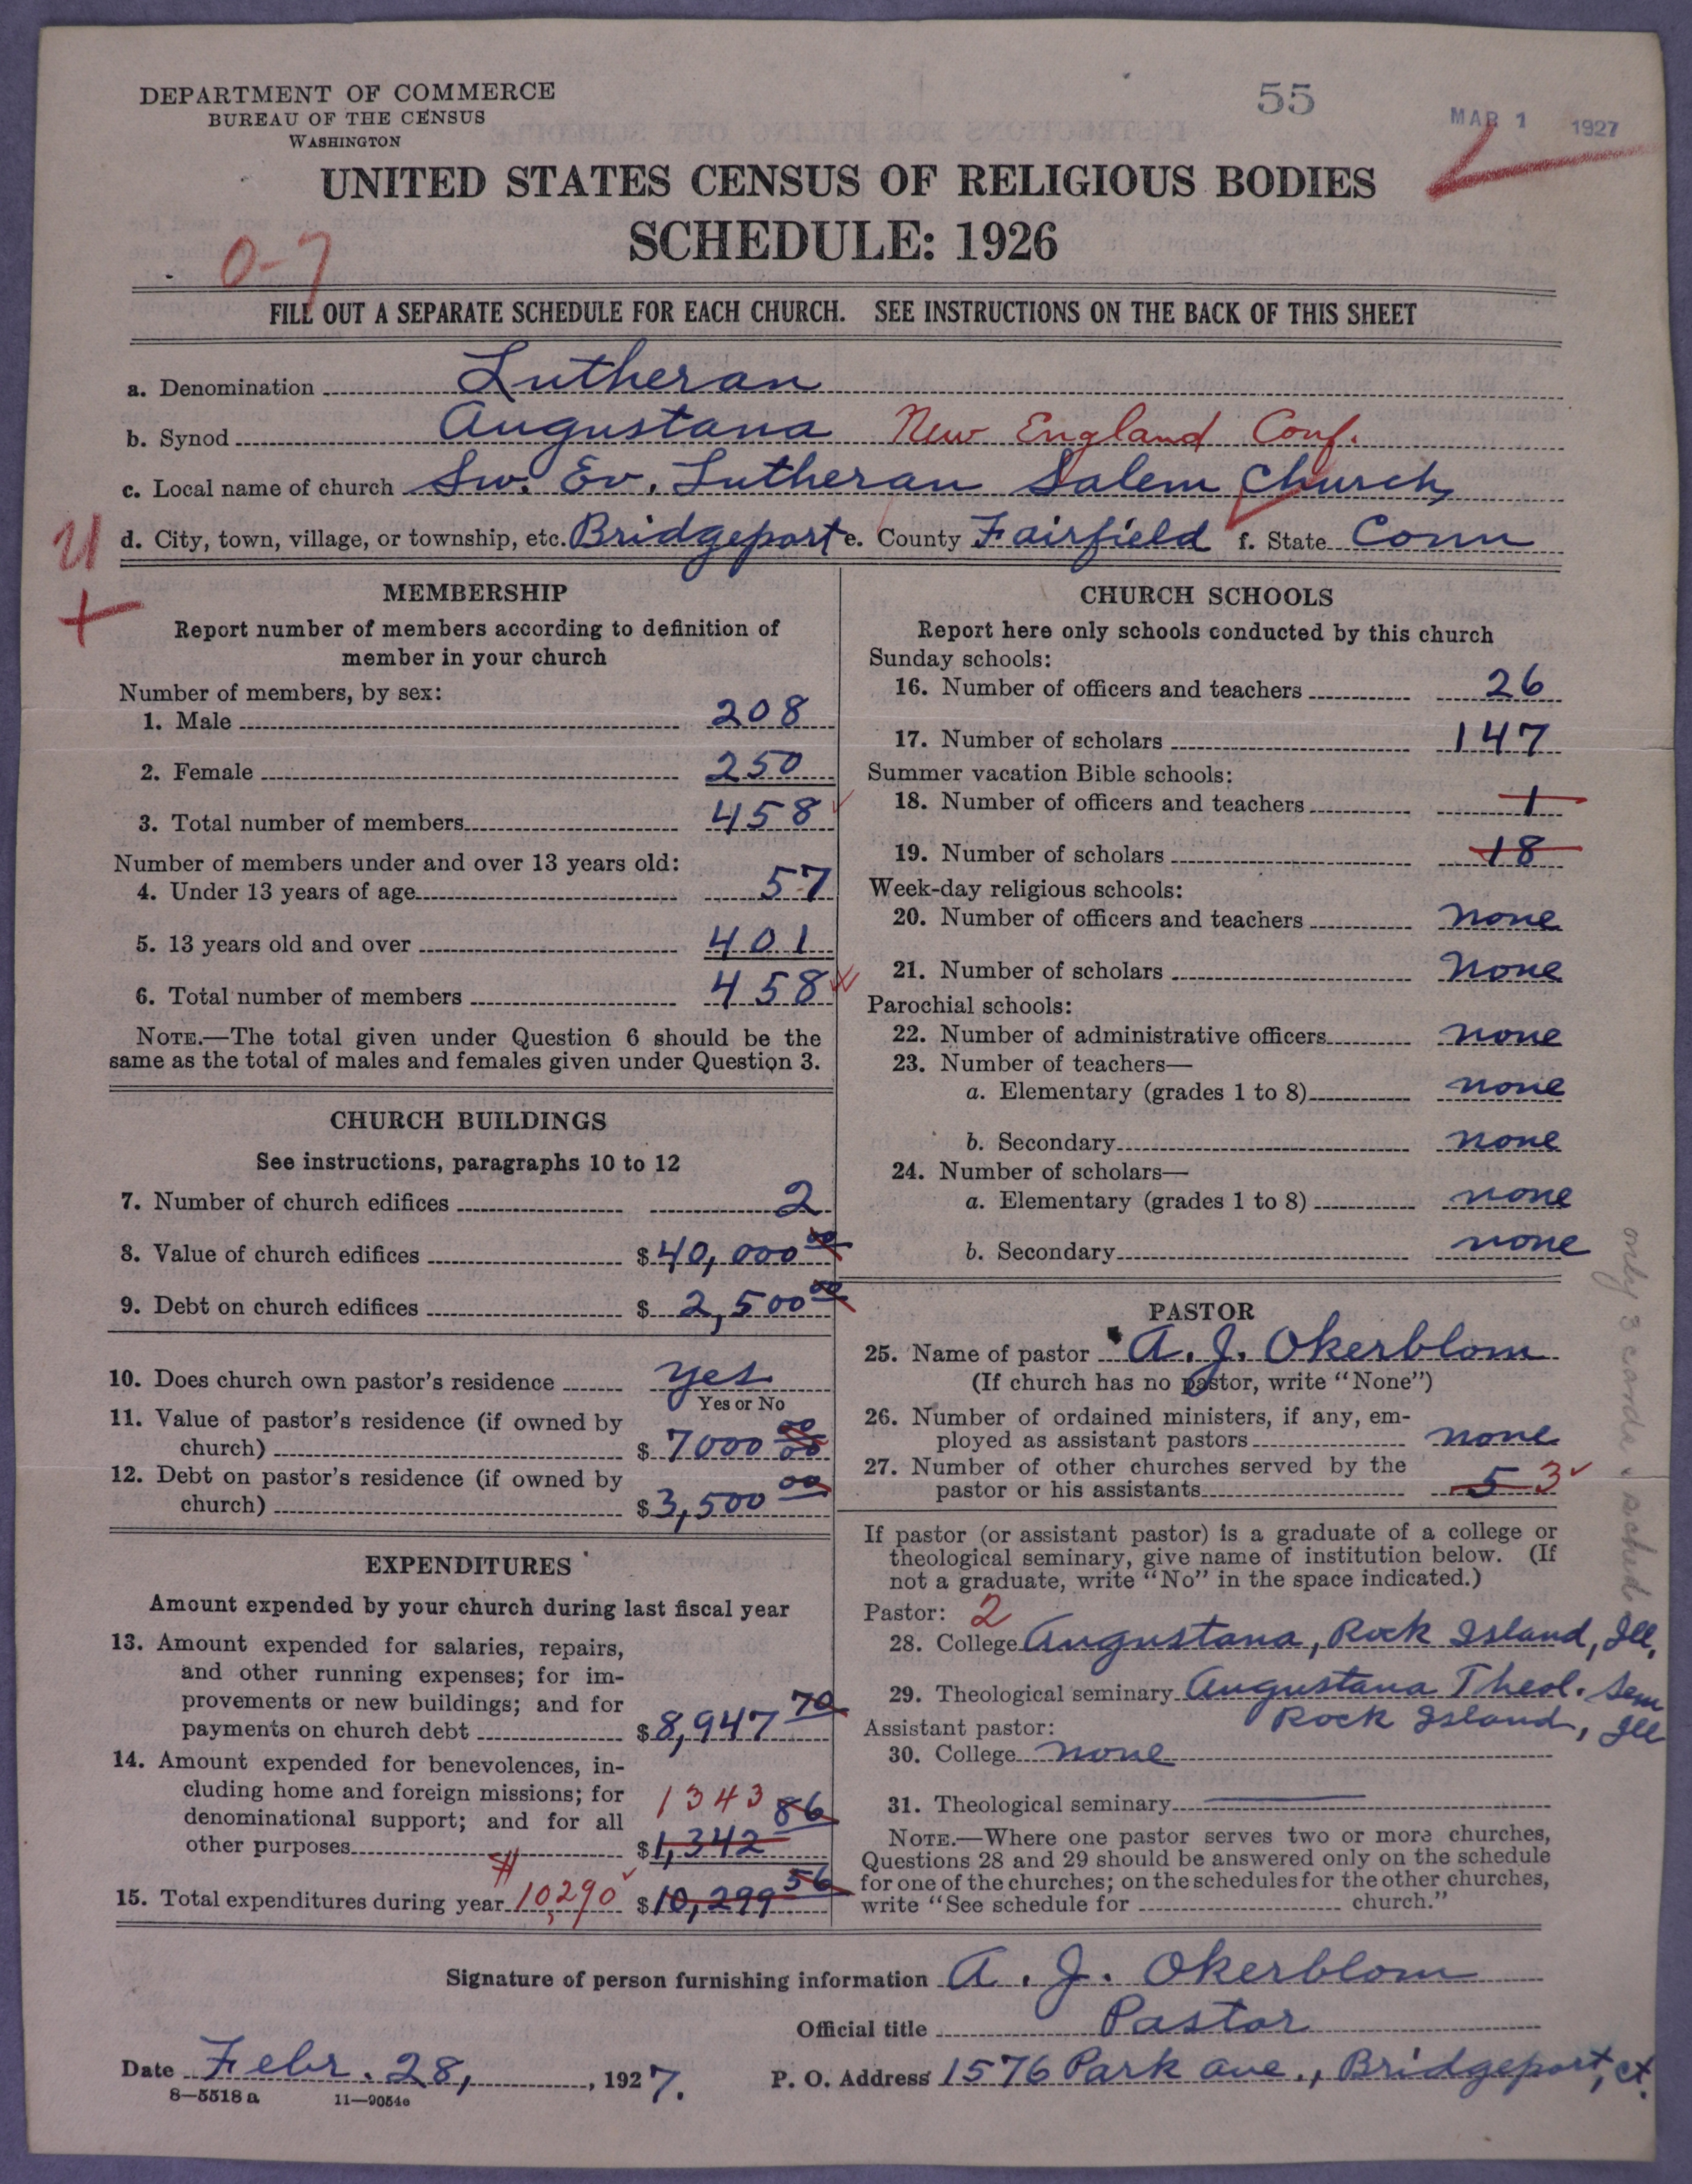 DEPARTMENT OF COMMERCE
BUREAU OF THE CENSUS
WASHINGTON
55
MAR 1 1927
UNITED STATES CENSUS OF RELIGIOUS BODIES
SCHEDULE: 1926
0-7
FILL OUT A SEPARATE SCHEDULE FOR EACH CHURCH. SEE INSTRUCTIONS ON THE BACK OF THIS SHEET
a. Denomination Lutheran
b. Synod Augustana New England Conf.
c. Local name of church Sw. Ev. Lutheran Salem Church
d. City, town, village, or township, etc. Bridgeport e. County Fairfield f. State Conn
U
+
MEMBERSHIP
Report number of members according to definition of
member in your church
Number of members, by sex:
1. Male 208
2. Female 250
3. Total number of members 458
Number of members under and over 13 years old:
4. Under 13 years of age 57
5. 13 years old and over 401
6. Total number of members 458
NOTE.—The total given under Question 6 should be the
same as the total of males and females given under Question 3.
CHURCH BUILDINGS
See instructions, paragraphs 10 to 12
7. Number of church edifices 2
8. Value of church edifices $ 40,000 00
9. Debt on church edifices $ 2,500 00
10. Does church own pastor's residence yes
Yes or No
11. Value of pastor's residence (if owned by
church) $ 7000 00
12. Debt on pastor's residence (if owned by
church) $ 3,500 00
EXPENDITURES
Amount expended by your church during last fiscal year
13. Amount expended for salaries, repairs,
and other running expenses; for im-
provements or new buildings; and for
payments on church debt $ 8,947 70
14. Amount expended for benevolences, in-
cluding home and foreign missions; for
denominational support; and for all
other purposes 1343 $ 1,342 86
15. Total expenditures during year $ 10,290 $ 10,299 56
CHURCH SCHOOLS
Report here only schools conducted by this church
Sunday schools:
16. Number of officers and teachers 26
17. Number of scholars 147
Summer vacation Bible schools:
18. Number of officers and teachers 1
19. Number of scholars 18
Week-day religious schools:
20. Number of officers and teachers none
21. Number of scholars none
Parochial schools:
22. Number of administrative officers none
23. Number of teachers—
a. Elementary (grades 1 to 8) none
b. Secondary none
24. Number of scholars—
a. Elementary (grades 1 to 8) none
b. Secondary none
PASTOR
25. Name of pastor A. J. Okerblom
(If church has no pastor, write "None")
26. Number of ordained ministers, if any, em-
ployed as assistant pastors none
27. Number of other churches served by the
pastor or his assistants 5 3
If pastor (or assistant pastor) is a graduate of a college or
theological seminary, give name of institution below. (If
not a graduate, write "No" in the space indicated.)
Pastor: 2
28. College Augustana, Rock Island, Ill.
29. Theological seminary Augustana Theol. Sem
Rock Island, Ill
Assistant pastor:
30. College none
31. Theological seminary
NOTE.—Where one pastor serves two or more churches,
Questions 28 and 29 should be answered only on the schedule
for one of the churches; on the schedules for the other churches,
write "See schedule for church."
only 3 cards & sched
Signature of person furnishing information A. J. Okerblom
Official title Pastor
Date Febr. 28, 1927.
P. O. Address 1576 Park ave., Bridgeport, ct.
8—5518 a 11—9054e